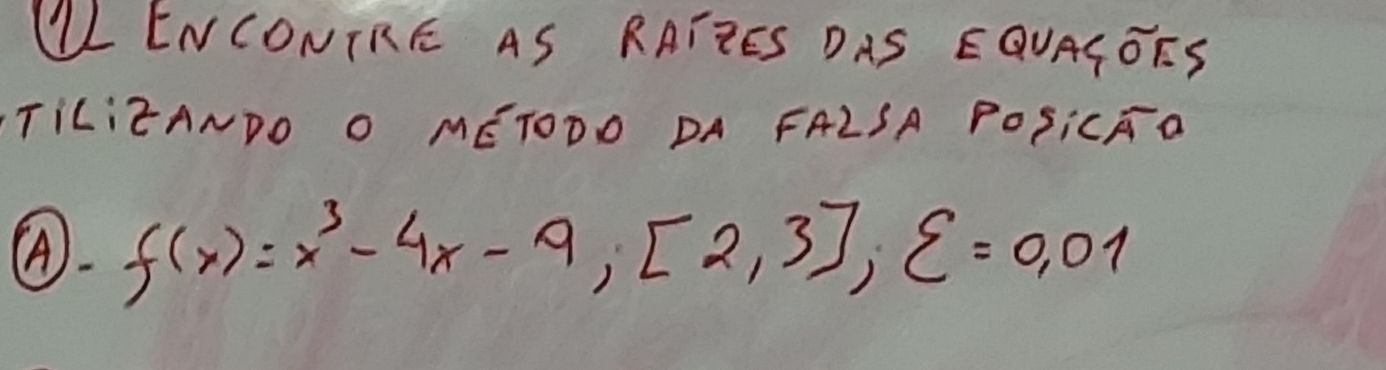 1) ENCONTRE AS RAÍZES DAS EQUAÇÕES
TILIZANDO O MÉTODO DA FALSA POSICÃO
A - f(x) = x³ - 4x - 9; [2,3]; ε = 0,01